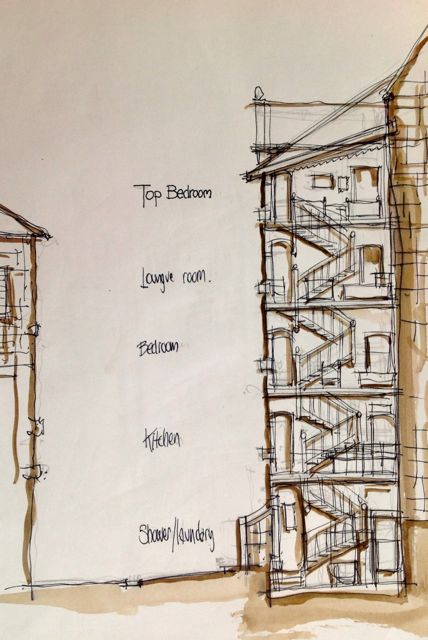 Top Bedroom
Loungve room.
Bedroom
Kitchen
Shower/laundery